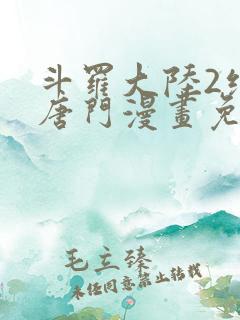 斗羅大陸2
唐門漫畫免
毛立臻
未经同意禁止转载